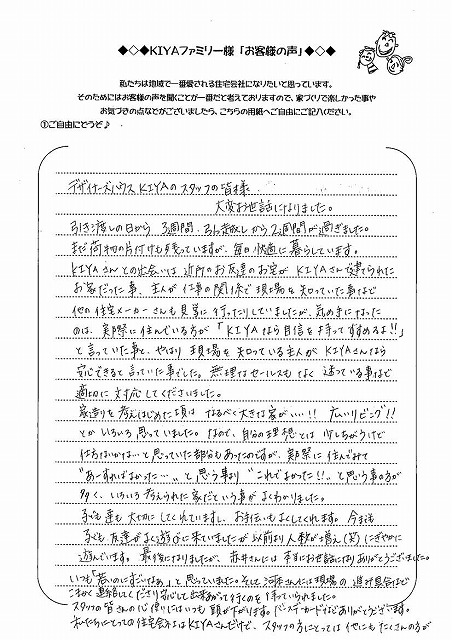 ◆◇◆KIYAファミリー様「お客様の声」◆◇◆
私たちは地域で一番愛される住宅会社になりたいと思っています。
そのためにはお客様の声を聞くことが一番だと考えておりますので、家づくりで楽しかった事や
お気づきの点などがございましたら、こちらの用紙へご自由にご記入ください。
①ご自由にどうぞ♪
デザイナーズハウス KIYAのスタッフの皆様
大変お世話になりました。
引き渡しの日から 3週間、引っ越しから2週間が過ぎました。
まだ荷物の片付けも残っていますが、毎日快適に暮らしています。
KIYAさんとの出会いは 近所のお友達のお宅が KIYAさんで建てられた
お宅だった事、主人が仕事の関係で現場を知っていた事など
他の住宅メーカーさんも見学に行ったりしていましたが、気めきになった
のは、実際に住んでいる方が「KIYAなら自信を持ってすすめるよ!!」
と言っていた事と、やはり 現場を知っている主人が KIYAさんなら
安心できると言っていた事でした。無理なセールスもなく 迷っている事など
適切に対応してくださいました。
家造りを考えはじめた頃は なるべく大きな家が…!! 広いリビング!!
とか いろいろ思っていました。なので、自分の理想とは 少しちがうけど
仕方ないかな…と思っていた部分もあったのですが、実際に住んでみて
"あーすればよかった…"と思う事より "これでよかった!!"と思う事の方が
多く、いろいろ考えられた家だという事がよくわかりました。
子ども達も 大切に してくれていますし、お手伝いもよくしてくれます。今までも
子ども 友達がよく遊びに来ていましたが以前より人数が増え(笑)にぎやかに
遊んでいます。最後になりましたが、赤井さんには 本当にお世話になりありがとうございました。
いつも「若いのにすごいなぁ」と思っていました。そして河原さんには現場の 進み具合など
こまめに連絡してくださり安心して出来あがって行くのを 待っていられました。
スタッフの皆さんの心使いにはいつも 頭が下がります。バースデーカードなどありがとうございます。
私たちにとっての住宅会社はKIYAさんだけど、スタッフの方にとっては 他にもたくさんの方が